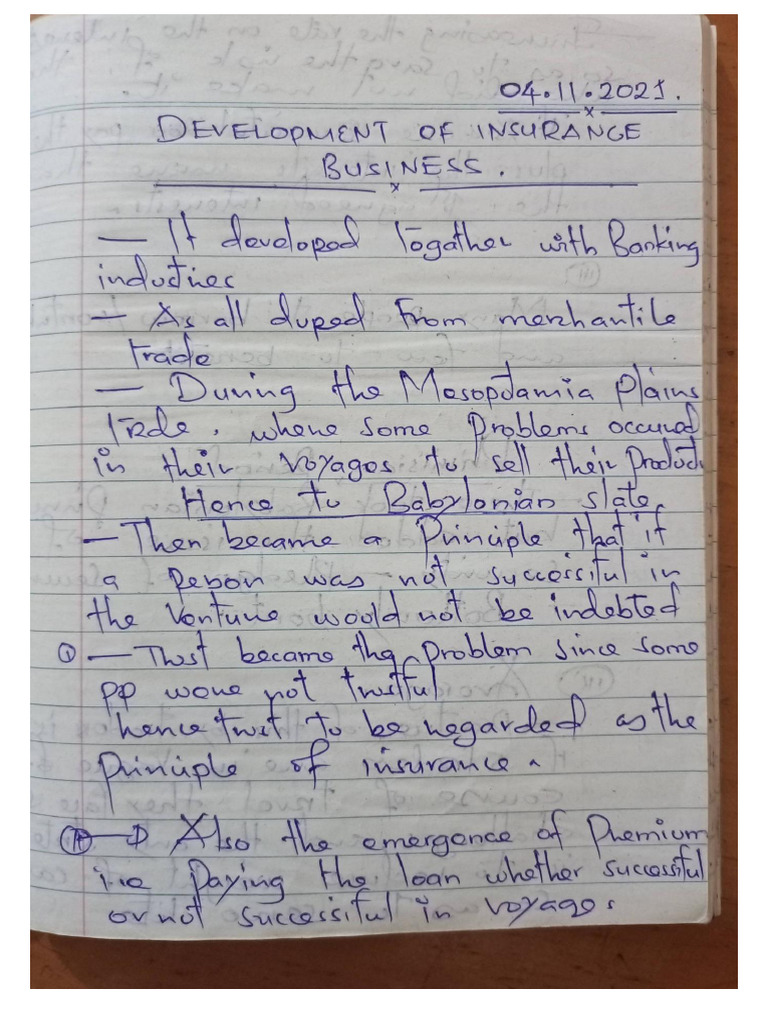 04.11.2021.
DEVELOPMENT OF INSURANCE
BUSINESS.
— It developed Togather with Banking
industries
— As all duped from merchantile
trade
— During the Mesopotamia Plains
trade, where some Problems occured
in their voyages to sell their Product
Hence to Babylonian state
— Then became a Principle that if
a person was not successful in
the Venture would not be indebted
① — Trust became the problem since some
pp were not trustful
hence trust to be regarded as the
principle of insurance.
Also the emergence of Premium
i.e Paying the loan whether successful
or not successiful in voyages